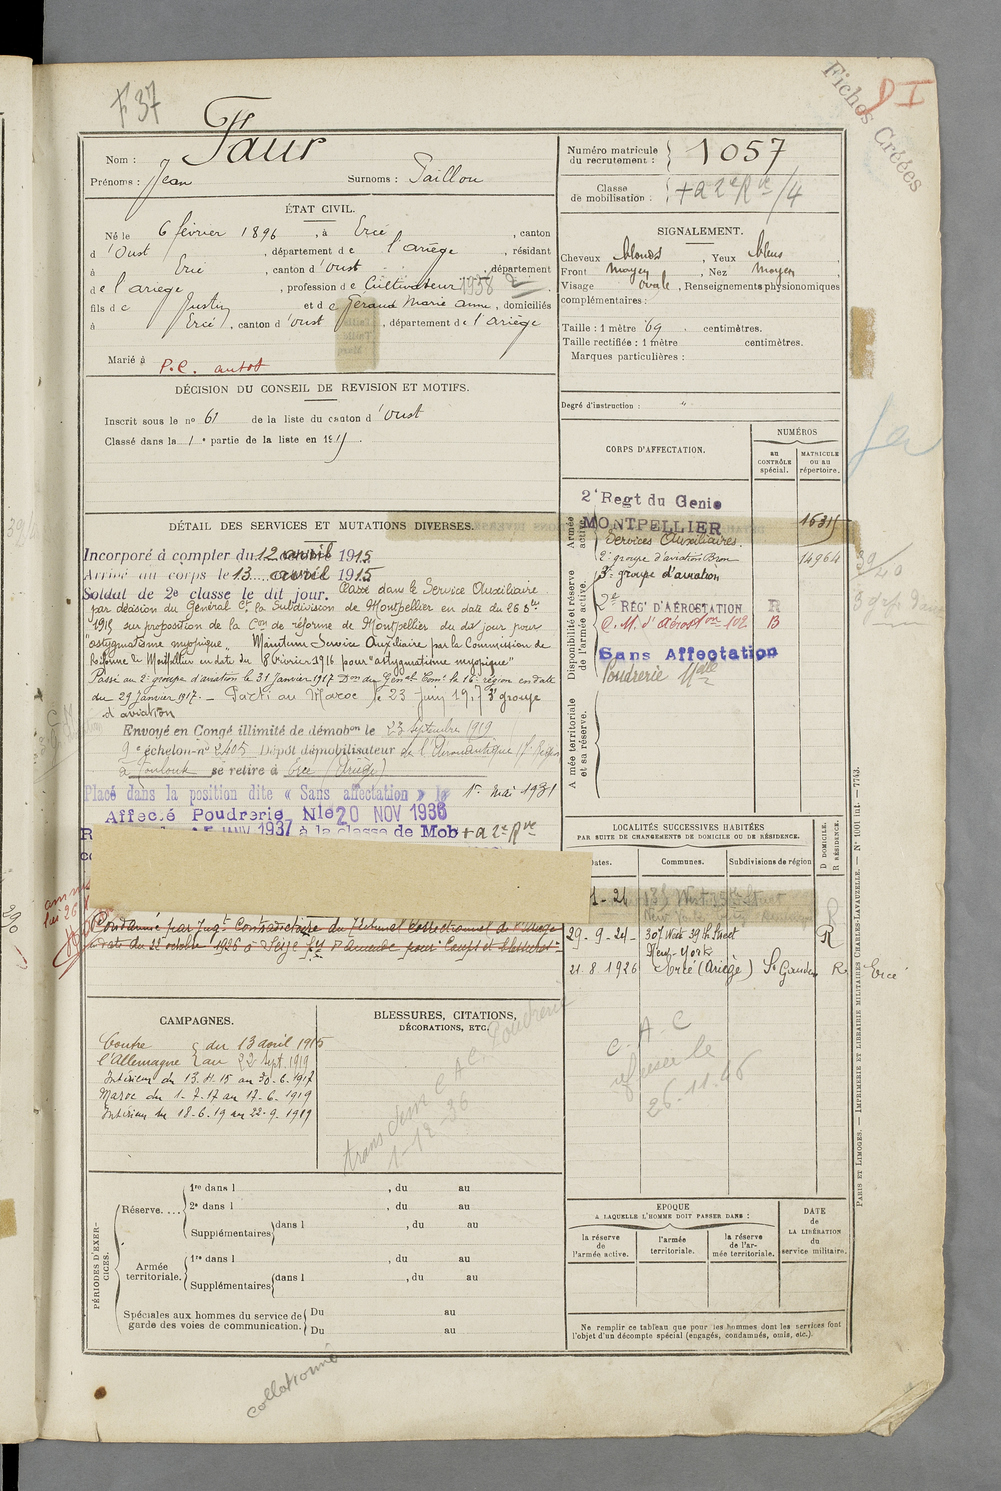 F 37
Fiches Créées
DI
Nom : Faur
Prénoms : Jean Surnoms : Saillou
Numéro matricule du recrutement : 1057
Classe de mobilisation : + a 2e Rve /4
ÉTAT CIVIL.
Né le 6 février 1896, à Ercé, canton
d'Oust, département de l'ariège, résidant
à Ercé, canton d'oust, département
de l'ariege, profession de Cultivateur 1938
fils de Justin et de Geraud Marie anne, domiciliés
à Ercé, canton d'oust, département de l'ariège
Marié à P.C. autot
SIGNALEMENT.
Cheveux blonds, Yeux bleus
Front moyen, Nez moyen,
Visage ovale, Renseignements physionomiques
complémentaires :
Taille : 1 mètre 69 centimètres.
Taille rectifiée : 1 mètre centimètres.
Marques particulières :
Degré d'instruction : "
DÉCISION DU CONSEIL DE REVISION ET MOTIFS.
Inscrit sous le no 61 de la liste du canton d'Oust
Classé dans la 1e partie de la liste en 1915.
DÉTAIL DES SERVICES ET MUTATIONS DIVERSES.
Incorporé à compter du 12 avril 1915
Arrivé au corps le 13 avril 1915
Soldat de 2e classe le dit jour. Classé dans le Service Auxiliaire
par décision du Général Ct la Subdivision de Montpellier en date du 26 8bre
1915 sur proposition de la Con de réforme de Montpellier du dit jour pour
"astygmatisme myopique" Maintenu Service Auxiliaire par la Commission de
Réforme de Montpellier en date du 8 février 1916 pour "astygmatisme myopique"
Passé au 2e groupe d'aviation le 31 janvier 1917 Don du Genal Comt la 16e région en date
du 29 janvier 1917. - Parti au Maroc le 23 juin 1917 3e groupe
d'aviation
Envoyé en Congé illimité de démobon le 23 Septembre 1919
9e échelon no 2405 Dépôt démobilisateur de l'Aéronautique
à Toulouse se retire à Ercé (Ariège)
Placé dans la position dite « Sans affectation » le 1er mai 1931
Affecté Poudrerie Nle 20 NOV 1936
JANV 1937 à la classe de Mob + a 2e Rve
Condamné par Jugt Contradictoire du Tribunal Correctionnel de
date du 22 octobre 1926 à Seize fs d'amende pour Coups et blessures
CORPS D'AFFECTATION.
NUMÉROS
au CONTRÔLE spécial.
MATRICULE OU AU répertoire.
Armée active.
2e Regt du Genie
MONTPELLIER 1631
Services Auxiliaires.
2e groupe d'aviation Bron 14964
3e groupe d'aviation
Disponibilité et réserve de l'armée active.
2e REGt D'AÉROSTATION R
C. M. d'Aérostion 102 B
Sans Affectation
Poudrerie Nale
Armée territoriale et sa réserve.
39/40
LOCALITÉS SUCCESSIVES HABITÉES
PAR SUITE DE CHANGEMENTS DE DOMICILE OU DE RÉSIDENCE.
Dates.
Communes.
Subdivisions de région
D DOMICILE.
R RÉSIDENCE.
1-21
29-9-24 307 West 39th Street New-York R
21.8.1926 Ercé (Ariège) St Gaudens R Ercé
C. A. C
refuser le
26.11.46
CAMPAGNES.
Contre l'Allemagne du 13 avril 1915
au 22 Sept. 1919
Intérieur du 13.4.15 au 30-6-1917
Maroc du 1-7-17 au 17-6-1919
Intérieur du 18-6-19 au 22-9-1919
BLESSURES, CITATIONS,
DÉCORATIONS, ETC.
C A C. Poudrerie
1-12-36
PÉRIODES D'EXERCICES.
Réserve....
1re dans l , du au
2e dans l , du au
Supplémentaires dans l , du au
Armée territoriale.
1re dans l , du au
Supplémentaires dans l , du au
Spéciales aux hommes du service de garde des voies de communication.
Du au
Du au
ÉPOQUE
A LAQUELLE L'HOMME DOIT PASSER DANS :
la réserve de l'armée active.
l'armée territoriale.
la réserve de l'armée territoriale.
DATE de LA LIBÉRATION du service militaire.
Ne remplir ce tableau que pour les hommes dont les services font
l'objet d'un décompte spécial (engagés, condamnés, omis, etc.).
PARIS ET LIMOGES. — IMPRIMERIE ET LIBRAIRIE MILITAIRES CHARLES-LAVAUZELLE. — No 1001 int. — 7743.
collationné